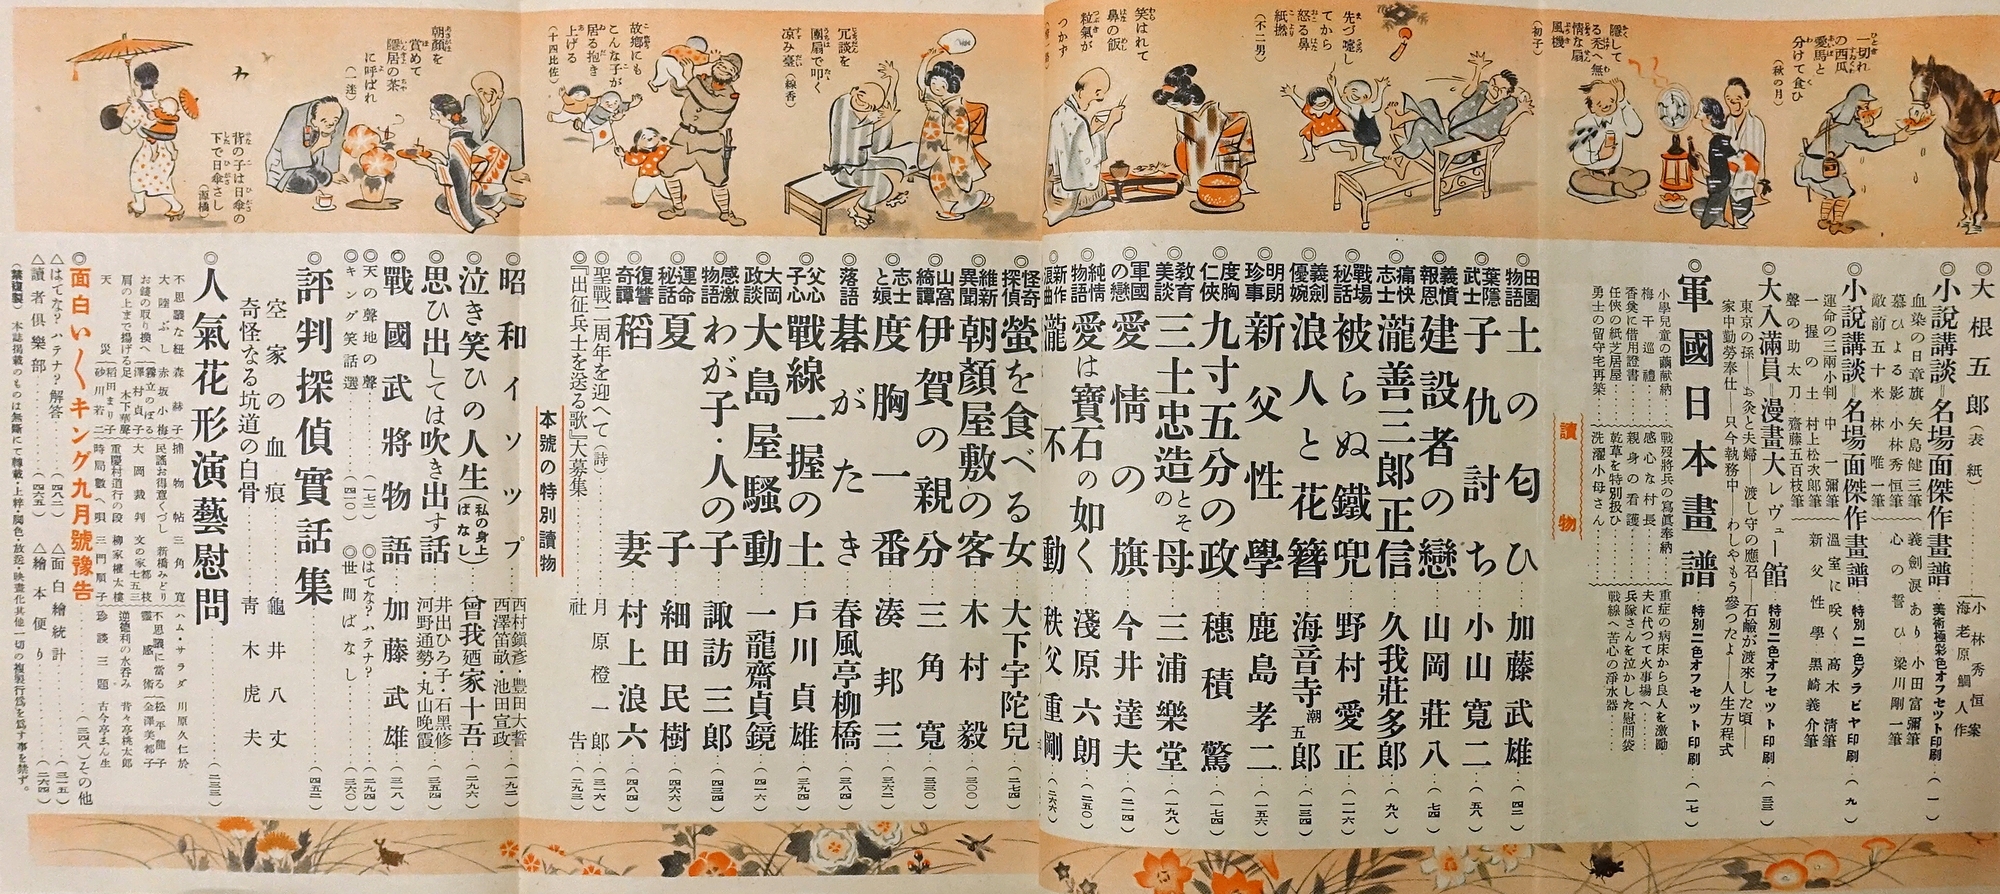 一切れの西瓜愛馬と分けて食ひ
(秋の月)
隠してる禿へ無情な扇風機
(初子)
先づ嚏してから怒る鼻紙撚
(不二男)
笑はれて鼻の飯粒気がつかず
冗談を團扇で叩く凉み臺
(線香)
故郷にもこんな子が居る抱き上げる
(十四比佐)
朝顔を賞めて隠居の茶に呼ばれ
(一迷)
背の子は日傘の下で日傘さし
(源橘)
◎大根五郎(表紙)
小林秀恒案
海老原鯛人作
◎小說講談名場面傑作畫譜 美術極彩色オフセツト印刷(一)
血染の日章旗 矢島健三筆
義劍淚あり 小田富彌筆
慕ひよる影 小林秀恒筆
心の誓ひ 梁川剛一筆
敵前五十米 林唯一筆
◎小說講談名場面傑作畫譜 特別二色グラビヤ印刷(九)
運命の三兩小判 中一彌筆
溫室に咲く 高木淸筆
一握の土 村上松次郎筆
新父性學 黑崎義介筆
聲の助太刀 齋藤五百枝筆
◎大入滿員漫畫大レヴュー館 特別二色オフセツト印刷(三三)
東京の孫―お灸と夫婦―渡し守の應召―石鹼が渡來した頃―
家中勤勞奉仕―只今執務中―わしやもう參つたよ―人生方程式
◎軍國日本畫譜 特別二色オフセツト印刷(一七)
小學兒童の繭獻納
戰歿將兵の寫眞奉納
重症の病床から良人を激勵
梅干巡禮
感心な村長
夫に代つて火事場へ
香奠に借用證書
親身の看護
兵隊さんを泣かした慰問袋
任俠の紙芝居屋
乾草を特別扱ひ
戰線へ苦心の淨水器
勇士の留守宅再築
洗濯小母さん
讀物
◎田園物語 土の匂ひ 加藤武雄(四二)
◎葉隱武士 子仇討ち 小山寬二(五八)
◎義憤報恩 建設者の戀 山岡莊八(七四)
◎痛快志士 瀧善三郎正信 久我莊多郎(九八)
◎戰場秘話 被らぬ鐵兜 野村愛正(一一六)
◎義劍優婉 浪人と花簪 海音寺潮五郎(一三四)
◎明朗珍事 新父性學 鹿島孝二(一五六)
◎度胸仁俠 九寸五分の政 穗積驚(一七四)
◎敎育美談 三士忠造とその母 三浦樂堂(一九八)
◎軍國の戀 愛情の旗 今井達夫(二一四)
◎純情物語 愛は寶石の如く 淺原六朗(二五〇)
◎新作浪曲 瀧不動 秩父重剛(二六六)
◎怪奇探偵 螢を食べる女 大下宇陀兒(二七四)
◎維新異聞 朝顏屋敷の客 木村毅(三〇〇)
◎山窩綺譚 伊賀の親分 三角寬(三三〇)
◎志士と娘 度胸一番 湊邦三(三六二)
◎落語 碁がたき 春風亭柳橋(三八四)
◎父心子心 戰線一握の土 戶川貞雄(三九四)
◎大岡政談 大島屋騷動 一龍齋貞鏡(四一六)
◎感激物語 わが子・人の子 諏訪三郎(四三四)
◎運命秘話 夏子 細田民樹(四六六)
◎復讐奇譚 稻妻 村上浪六(四八四)
◎聖戰二周年を迎へて(詩) 月原橙一郞(三一六)
◎『出征兵士を送る歌』大募集 社告(二九三)
本號の特別讀物
◎昭和イソツプ 西村鎭彥・豐田大誓 西澤笛畝・池田宣政(一九二)
◎泣き笑ひの人生(私の身上ばなし) 曾我廼家十吾(二九六)
◎思ひ出しては吹き出す話 井出ひろ子・石黑修 河野通勢・丸山晚霞(三五四)
◎戰國武將物語 加藤武雄(三一八)
◎天の聲地の聲(一七三)
◎はてな?ハテナ?(二九四)
◎キング笑話選(四一〇)
◎世間ばなし(三六〇)
◎評判探偵實話集(四五二)
空家の血痕 龜井八丈
奇怪なる坑道の白骨 靑木虎夫
◎人氣花形演藝慰問(二三三)
不思議な紐 森赫子
捕物帖 三角寬
ハム・サラダ 川原久仁於
大陸ぶし 赤坂小梅
民謠お得意くづし 新橋みどり
不思議に當る靈感術 松平龍子 金澤美都子
お錢の取り換へ 霧立のぼる 澤村貞子
大岡裁判 文の家都枝
肩の上まで揚げる足 木下華聲 稻田まり子
重慶村道行の段 柳家權太樓
逆德利の水呑み 昔々亭桃太郎
天災 砂川若二
時局數へ唄 三門順子
珍談三題 古今亭志ん生
◎面白いキング九月號豫告(三四八)その他
△はてな?ハテナ?解答(四八三)
△面白繪統計(三一五)
△讀者俱樂部(四六五)
△繪本便り(二六四)
(禁複製) 本誌揭載のものは無斷にて轉載・上梓・脚色・放送・映畫化其他一切の複製行爲を爲す事を禁ず。